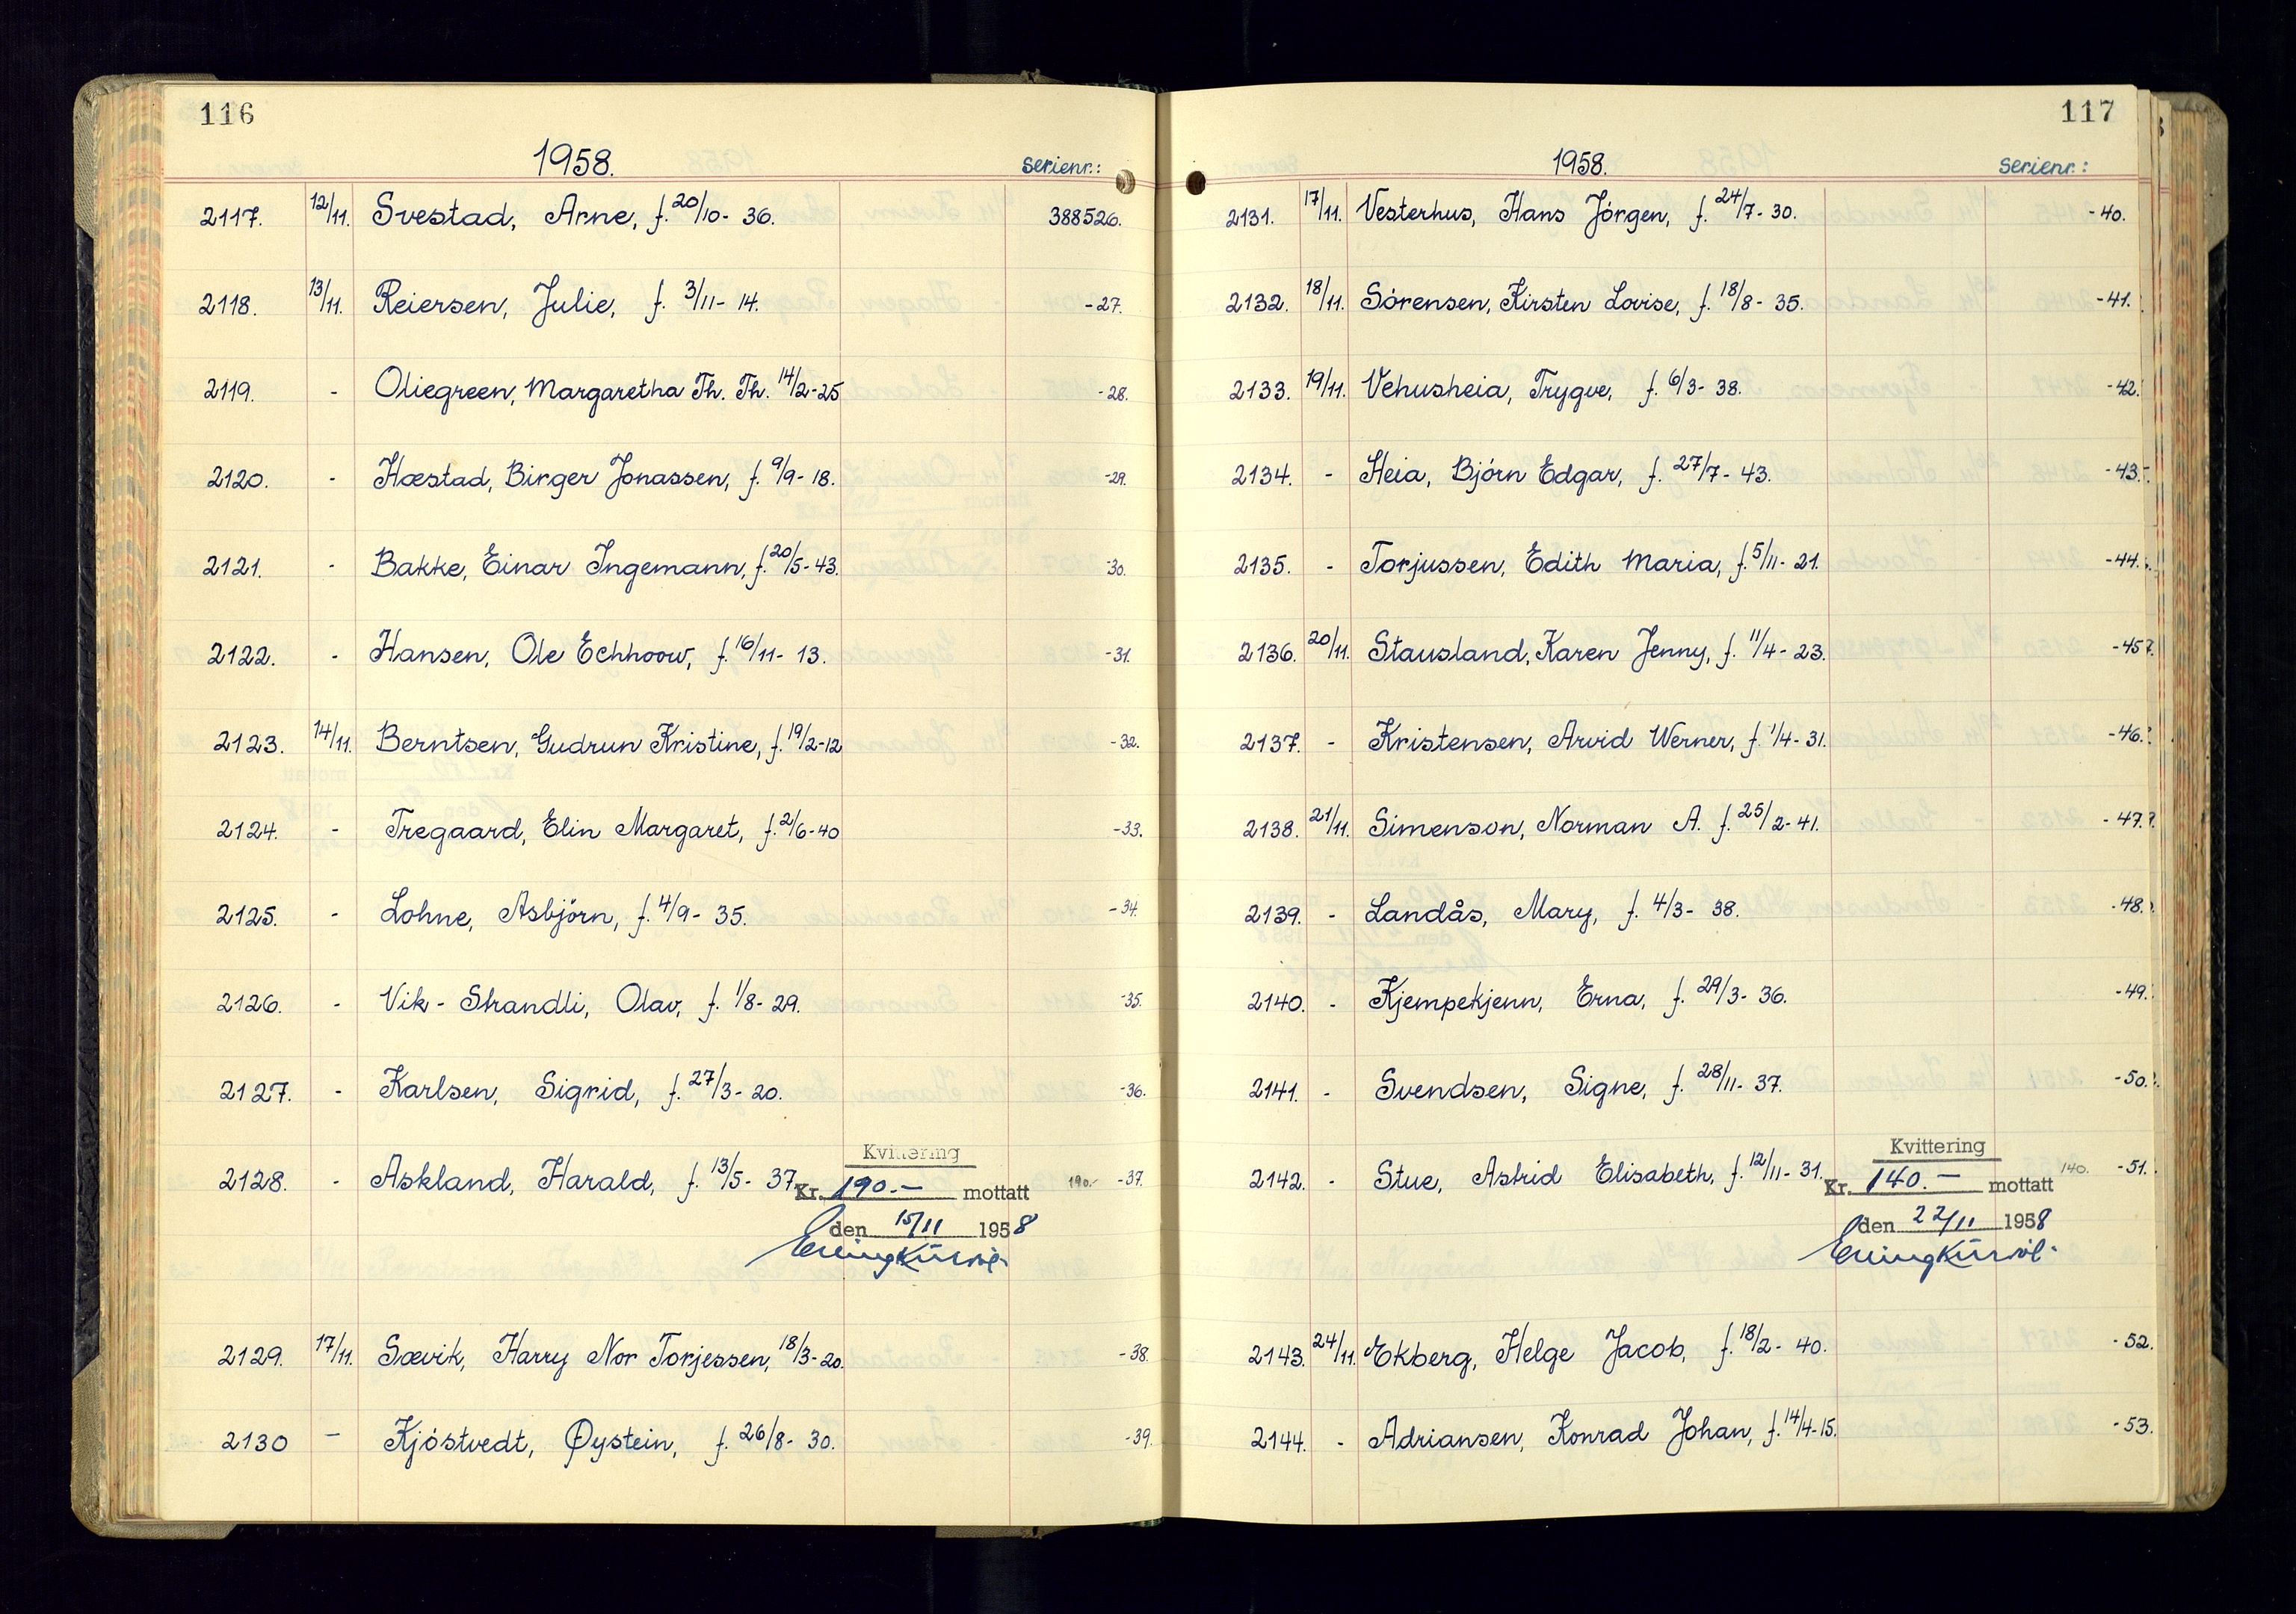 116
1958.
serienr.:
2117. 12/11. Svestad, Arne, f. 20/10- 36. 388526.
2118. 13/11. Reiersen, Julie, f. 3/11- 14. -27.
2119. - Oliegreen, Margaretha Th. Th. 14/2-25 -28.
2120. - Hæstad, Birger Jonassen, f. 9/9- 18. -29.
2121. - Bakke, Einar Ingemann, f. 20/5- 43. -30.
2122. - Hansen, Ole Echhoow, f. 16/11- 13. -31.
2123. 14/11. Berntsen, Gudrun Kristine, f. 19/2-12 -32.
2124. - Tregaard, Elin Margaret, f. 2/6-40 -33.
2125. - Lohne, Asbjörn, f. 4/9- 35. -34.
2126. - Vik - Strandli, Olav, f. 1/8- 29. -35.
2127. - Karlsen, Sigrid, f. 27/3- 20. -36.
Kvittering
2128. - Askland, Harald, f. 13/5- 37. Kr. 190.- mottatt 190.- -37.
den 15/11 1958
2129. 17/11. Sævik, Harry Nor Torjessen, 18/3-20. -38.
2130 - Kjöstvedt, Øystein, f. 26/8- 30. -39.
117
1958.
serienr.:
2131. 17/11. Vesterhus, Hans Jörgen, f. 24/7- 30. -40.
2132. 18/11. Sörensen, Kirsten Lovise, f. 18/8- 35. -41.
2133. 19/11. Vehusheia, Trygve, f. 6/3- 38. -42.
2134. - Heia, Björn Edgar, f. 27/7- 43. -43.
2135. - Torjussen, Edith Maria, f. 5/11- 21. -44.
2136. 20/11. Stausland, Karen Jenny, f. 11/4- 23. -45
2137. - Kristensen, Arvid Werner, f. 1/4- 31. -46.
2138. 21/11. Simenson, Norman A. f. 25/2-41. -47.
2139. - Landås, Mary, f. 4/3- 38. -48.
2140. - Kjempekjenn, Erna, f. 29/3- 36. -49.
2141. - Svendsen, Signe, f. 28/11- 37. -50.
Kvittering
2142. - Stue, Astrid Elisabeth, f. 12/11- 31. Kr. 140.- mottatt 140. -51.
den 22/11 1958
2143. 24/11. Ekberg, Helge Jacob, f. 18/2- 40. -52.
2144. - Adriansen, Konrad Johan, f. 14/4-15. -53.